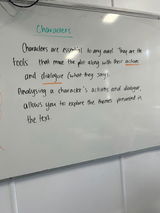 Characters
Characters are essential to any novel. They are the
tools that move the plot along with their actions
and dialogue (what they say).
Analysing a character's actions and dialogue,
allows you to explore the themes presented in
the text.